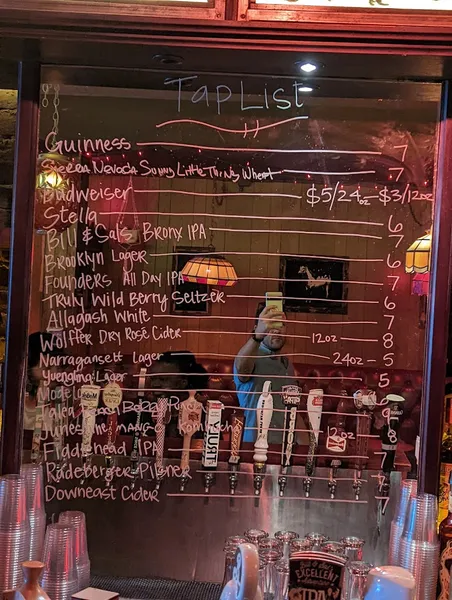 Tap List
Guinness 7
Sierra Nevada Sunny Little Thing Wheat 7
Budweiser $5/24oz - $3/12oz
Stella 6
Bill & Sals Bronx IPA 7
Brooklyn Lager 6
Founders All Day IPA 7
Truly Wild Berry Seltzer 6
Allagash White 7
Wolffer Dry Rosé Cider 12oz 8
Narragansett Lager 24oz - 5
Yuengling Lager 5
Modelo 6
Juneshine 12oz
Fiddlehead IPA
Radeberger Pilsner
Downeast Cider 7
EXCELLENT